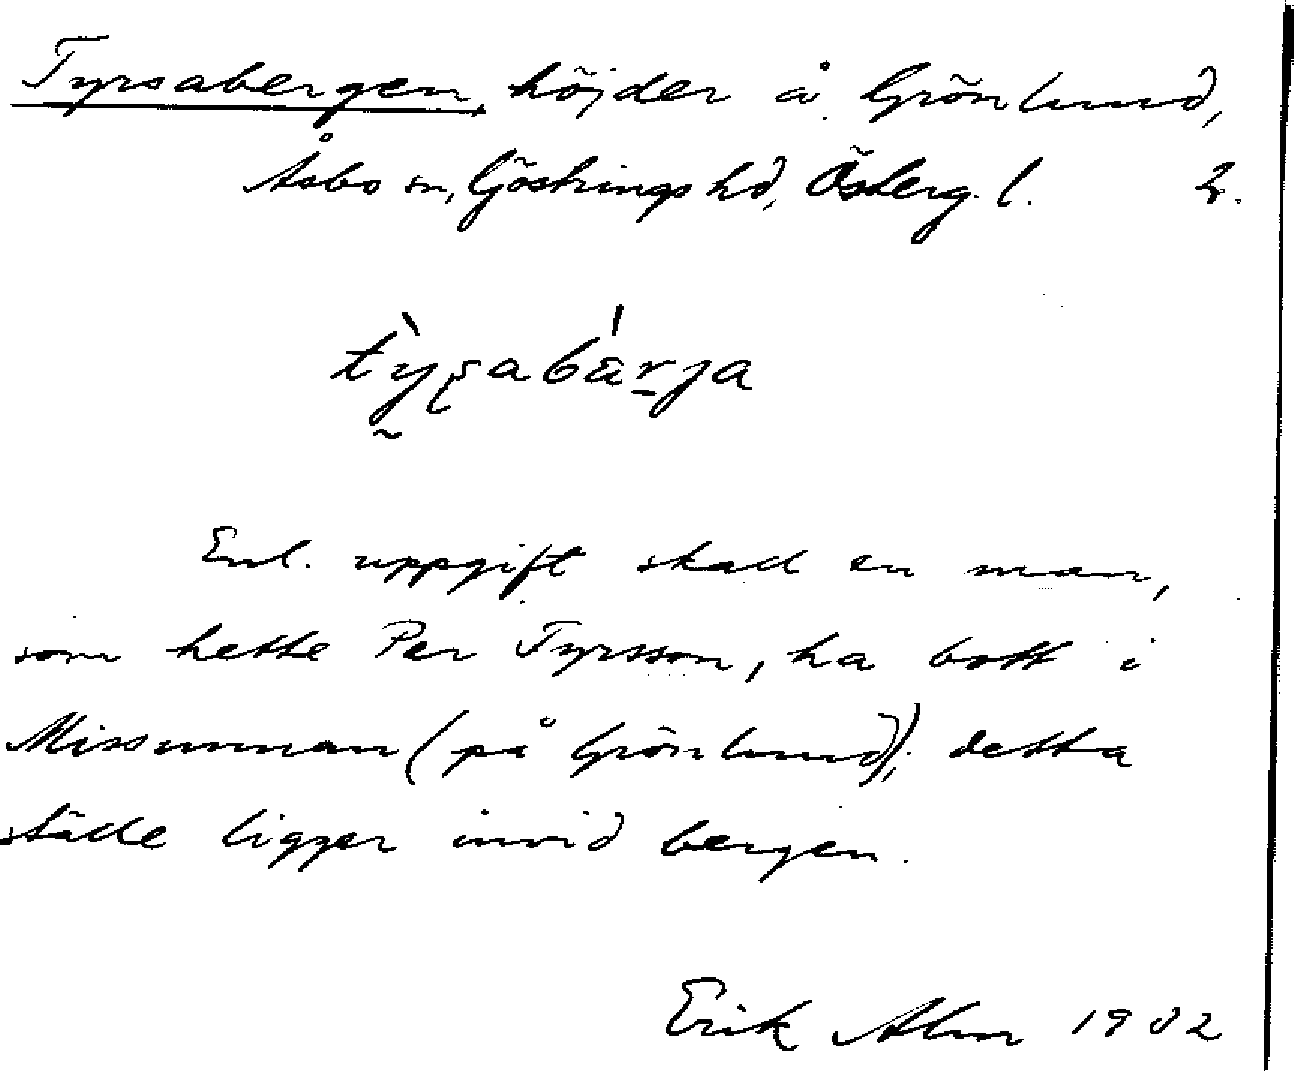 Tyrsabergen, höjder å Grönlund,
Åsbo sn, Göstrings hd, Österg. l. 2.
Enl. uppgift skall en man,
som hette Per Tyrsson, ha bott i
Missunnan (på Grönlund); detta
ställe ligger invid bergen.
Erik Alm 1932